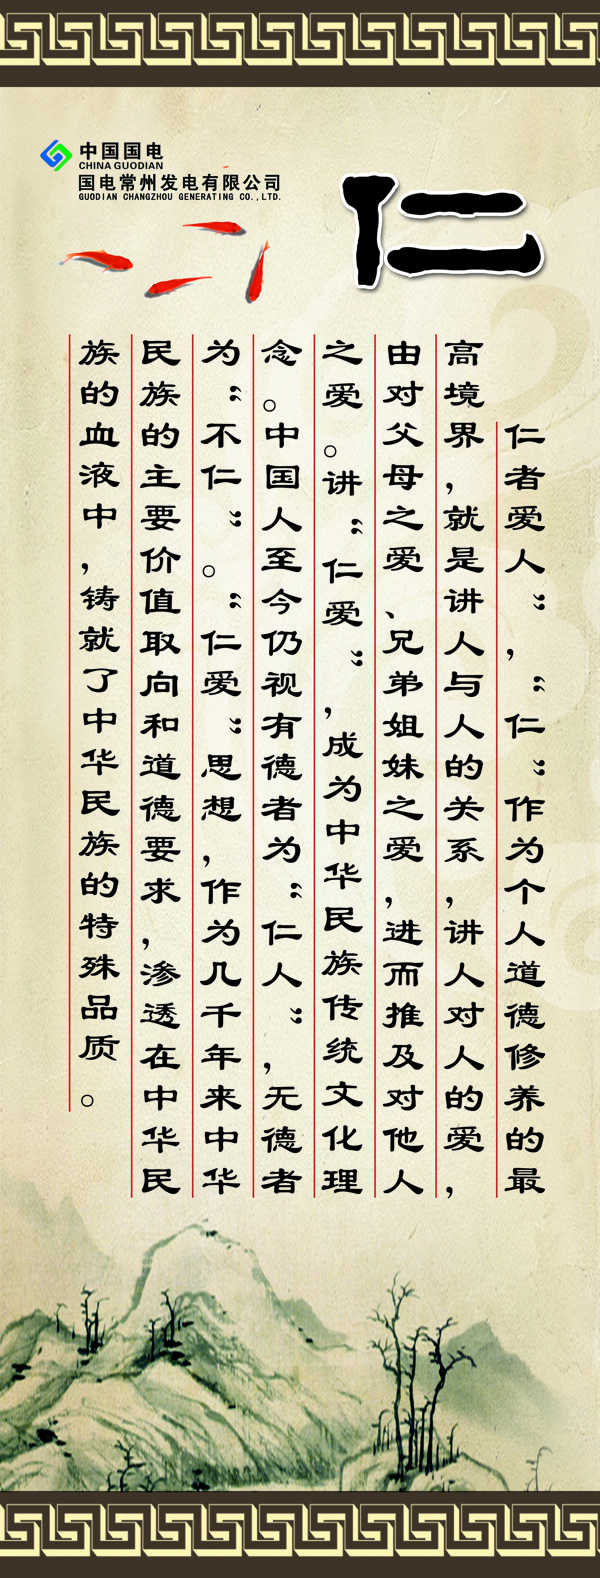 中国国电
CHINA GUODIAN
国电常州发电有限公司
GUODIAN CHANGZHOU GENERATING CO.,LTD.
仁
仁者爱人”，“仁”作为个人道德修养的最
高境界，就是讲人与人的关系，讲人对人的爱，
由对父母之爱、兄弟姐妹之爱，进而推及对他人
之爱。讲“仁爱”，成为中华民族传统文化理
念。中国人至今仍视有德者为“仁人”，无德者
为“不仁”。“仁爱”思想，作为几千年来中华
民族的主要价值取向和道德要求，渗透在中华民
族的血液中，铸就了中华民族的特殊品质。